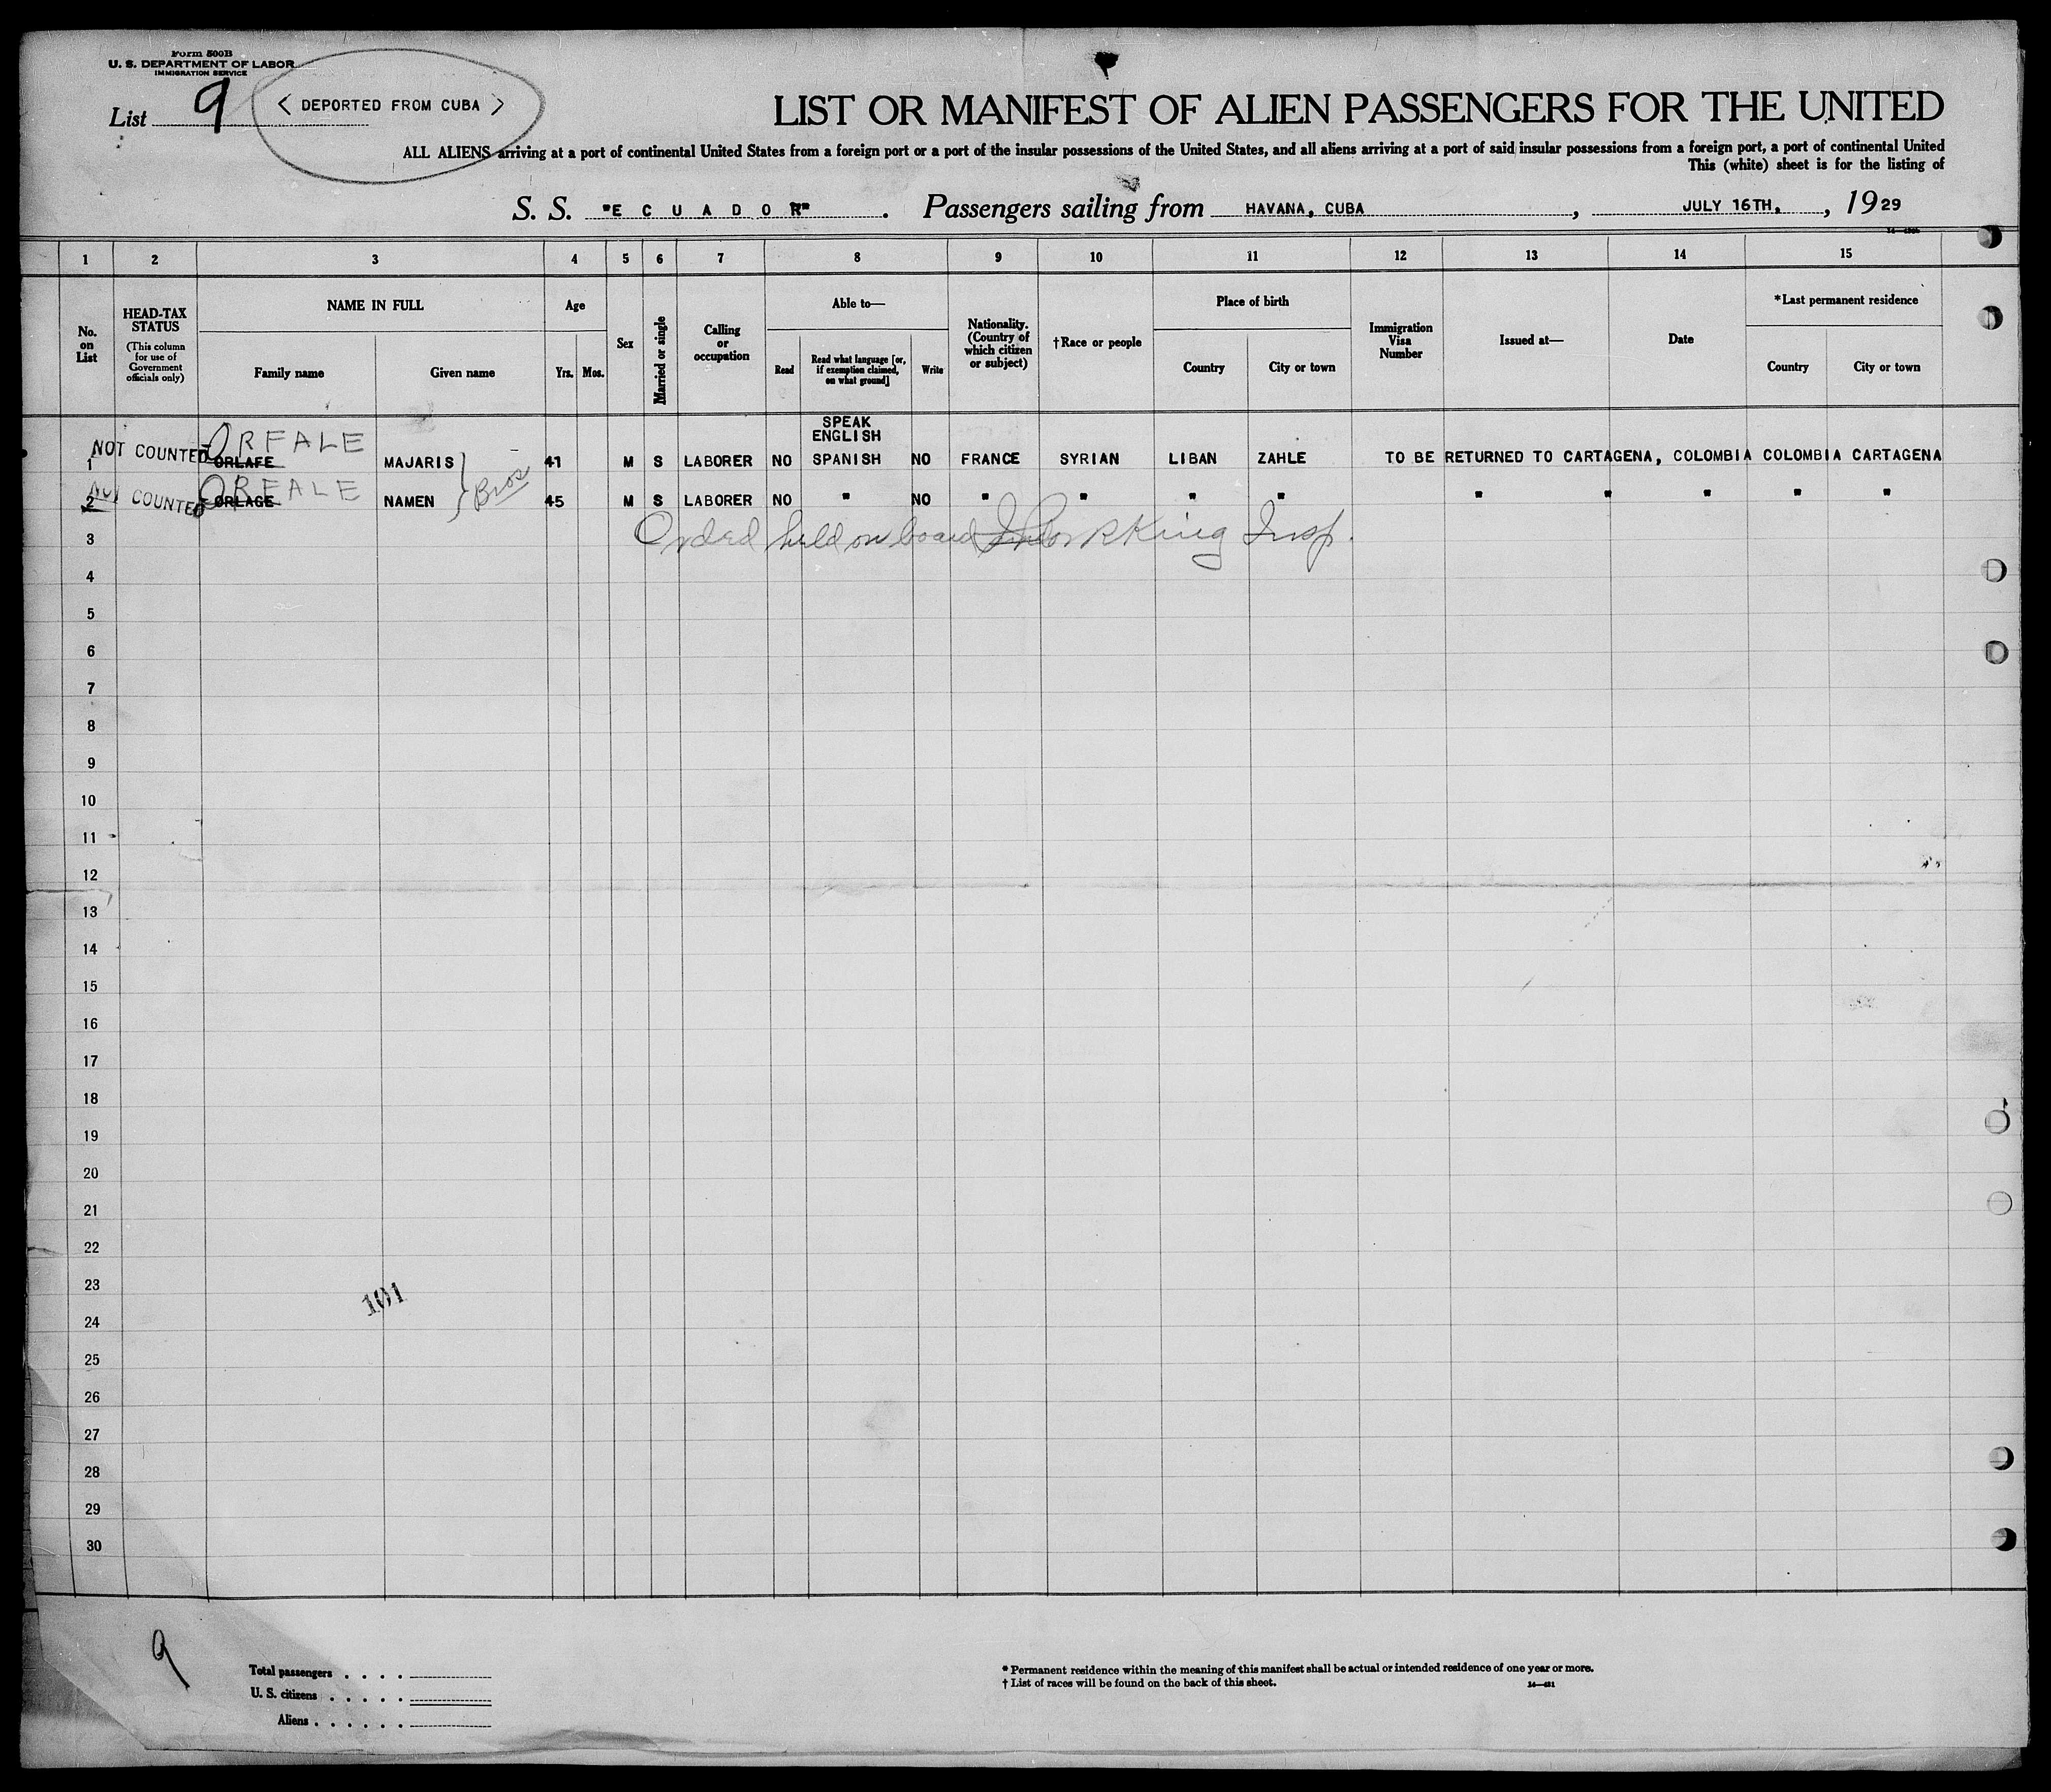 Form 500B
U. S. DEPARTMENT OF LABOR
IMMIGRATION SERVICE
List 9
< DEPORTED FROM CUBA >
LIST OR MANIFEST OF ALIEN PASSENGERS FOR THE UNITED
ALL ALIENS arriving at a port of continental United States from a foreign port or a port of the insular possessions of the United States, and all aliens arriving at a port of said insular possessions from a foreign port, a port of continental United
This (white) sheet is for the listing of
S. S. "E C U A D O R" . Passengers sailing from HAVANA, CUBA , JULY 16TH, , 1929
1 2 3 4 5 6 7 8 9 10 11 12 13 14 15
No. on List
HEAD-TAX STATUS
(This column for use of Government officials only)
NAME IN FULL
Family name
Given name
Age
Yrs. Mos.
Sex
Married or single
Calling or occupation
Able to—
Read
Read what language [or, if exemption claimed, on what ground]
Write
Nationality. (Country of which citizen or subject)
†Race or people
Place of birth
Country
City or town
Immigration Visa Number
Issued at—
Date
*Last permanent residence
Country
City or town
SPEAK
ENGLISH
NOT COUNTED ORFALE
1 ORLAFE MAJARIS 41 M S LABORER NO SPANISH NO FRANCE SYRIAN LIBAN ZAHLE TO BE RETURNED TO CARTAGENA, COLOMBIA COLOMBIA CARTAGENA
Bros
NOT COUNTED ORFALE
2 ORLAGE NAMEN 45 M S LABORER NO " NO " " " " " " " " "
3 Ordrd held on board King Insp.
4
5
6
7
8
9
10
11
12
13
14
15
16
17
18
19
20
21
22
23
101
24
25
26
27
28
29
30
9
Total passengers . . . .
U. S. citizens . . . . .
Aliens . . . . . .
* Permanent residence within the meaning of this manifest shall be actual or intended residence of one year or more.
† List of races will be found on the back of this sheet.